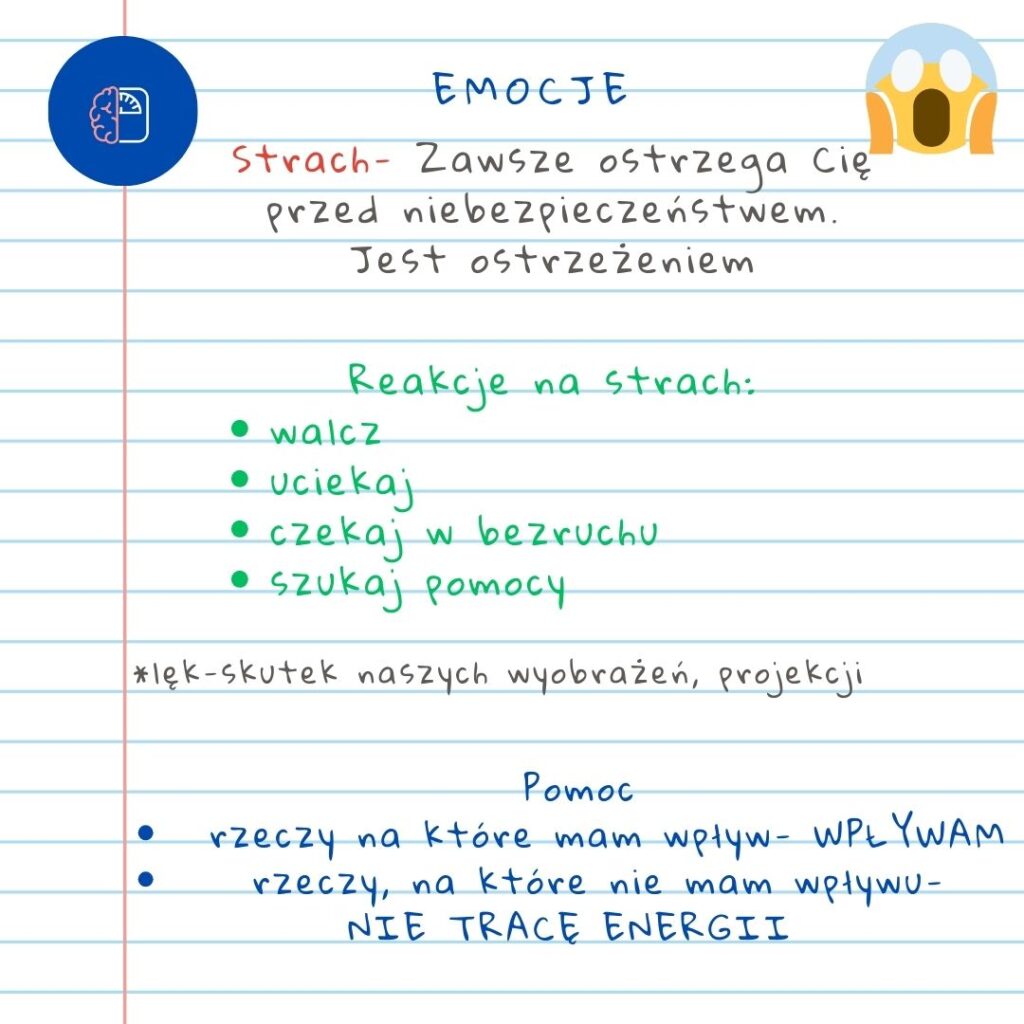 EMOCJE
Strach- Zawsze ostrzega Cię
przed niebezpieczeństwem.
Jest ostrzeżeniem
Reakcje na strach:
• walcz
• uciekaj
• czekaj w bezruchu
• szukaj pomocy
*lęk-skutek naszych wyobrażeń, projekcji
Pomoc
• rzeczy na które mam wpływ- WPŁYWAM
• rzeczy, na które nie mam wpływu-
NIE TRACĘ ENERGII